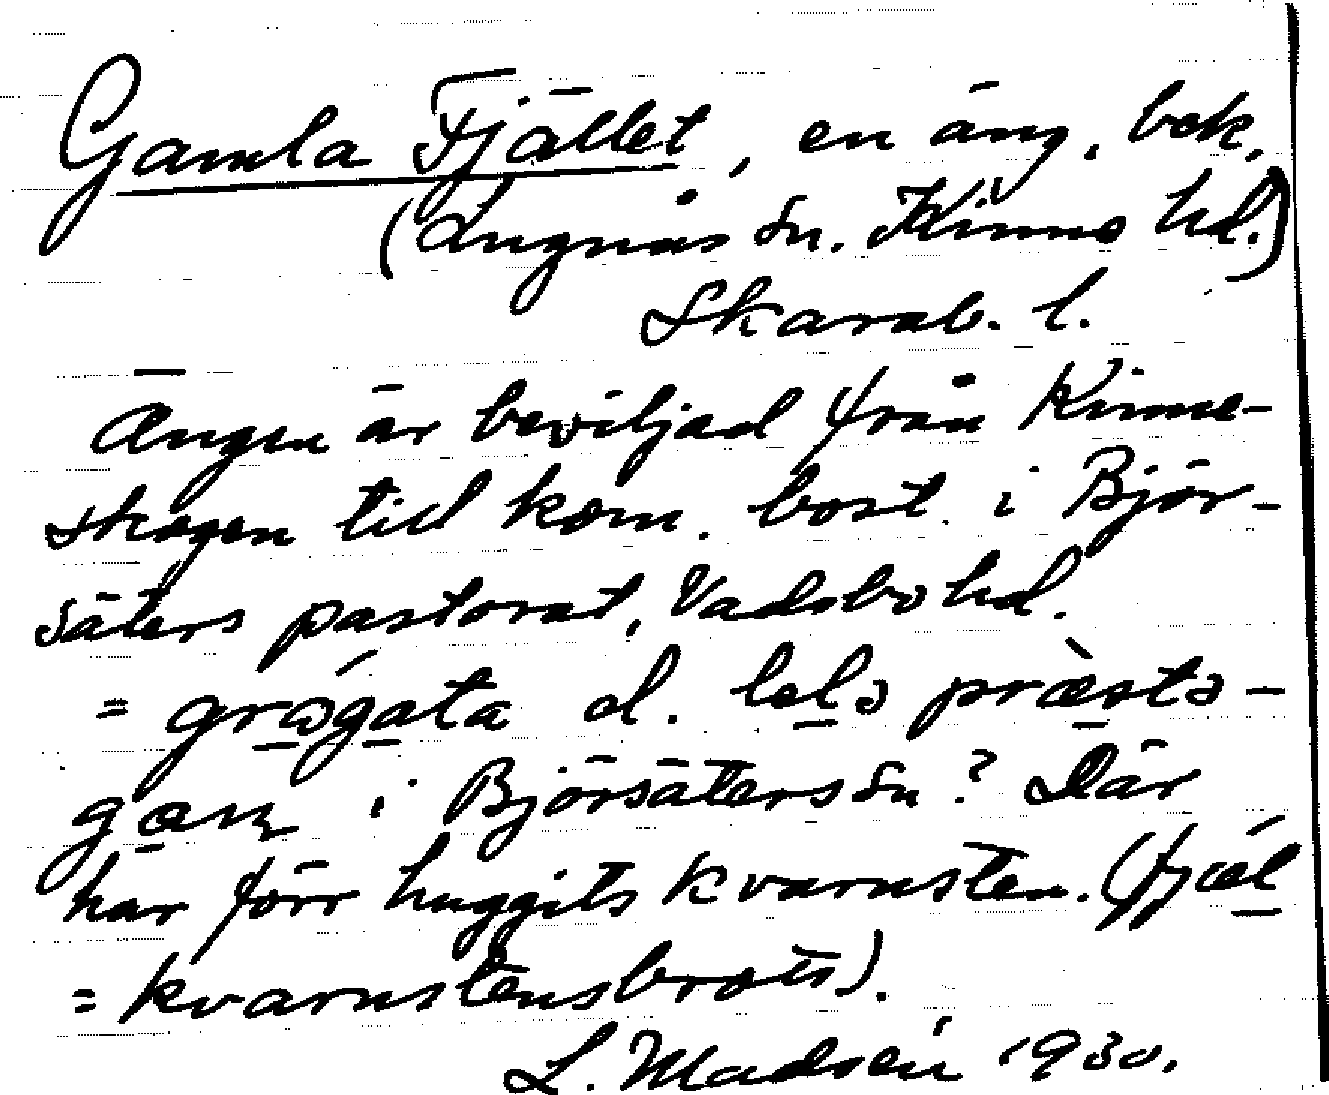 Gamla Fjället, en äng, bek.
(Lugnås sn. Kinne hd.)
Skarab. l.
Ängen är beviljad från Kinne-
skogen till kom. bost. i Björ-
säters pastorat, Vadsbo hd.
= grågata d. lels præsta-
gæɳ i Björsäters sn? Där
har förr huggits kvarnsten. (fjæl
= kvarnstensbrott).
L. Madsén 1930.